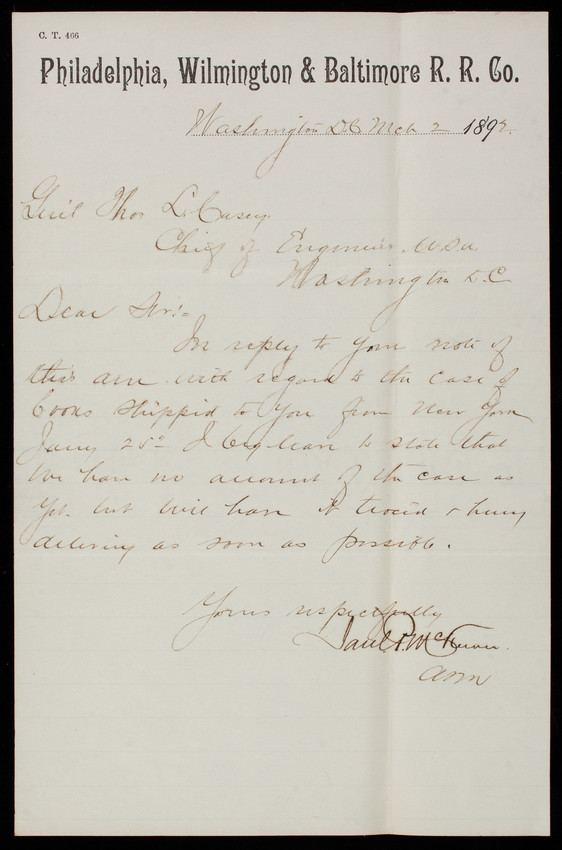 C. T. 466
Philadelphia, Wilmington & Baltimore R. R. Co.
Washington DC Mch 2 1892.
Gen'l Thos L. Casey
Chief of Engineers, U.S.A.
Washington D.C
Dear Sir:-
In reply to your note of
this am. with regard to the case of
books shipped to you from New York
Jany 25" I beg leave to state that
we have no account of the case as
yet but will have it traced & hurry
delivery as soon as possible.
Yours respectfully